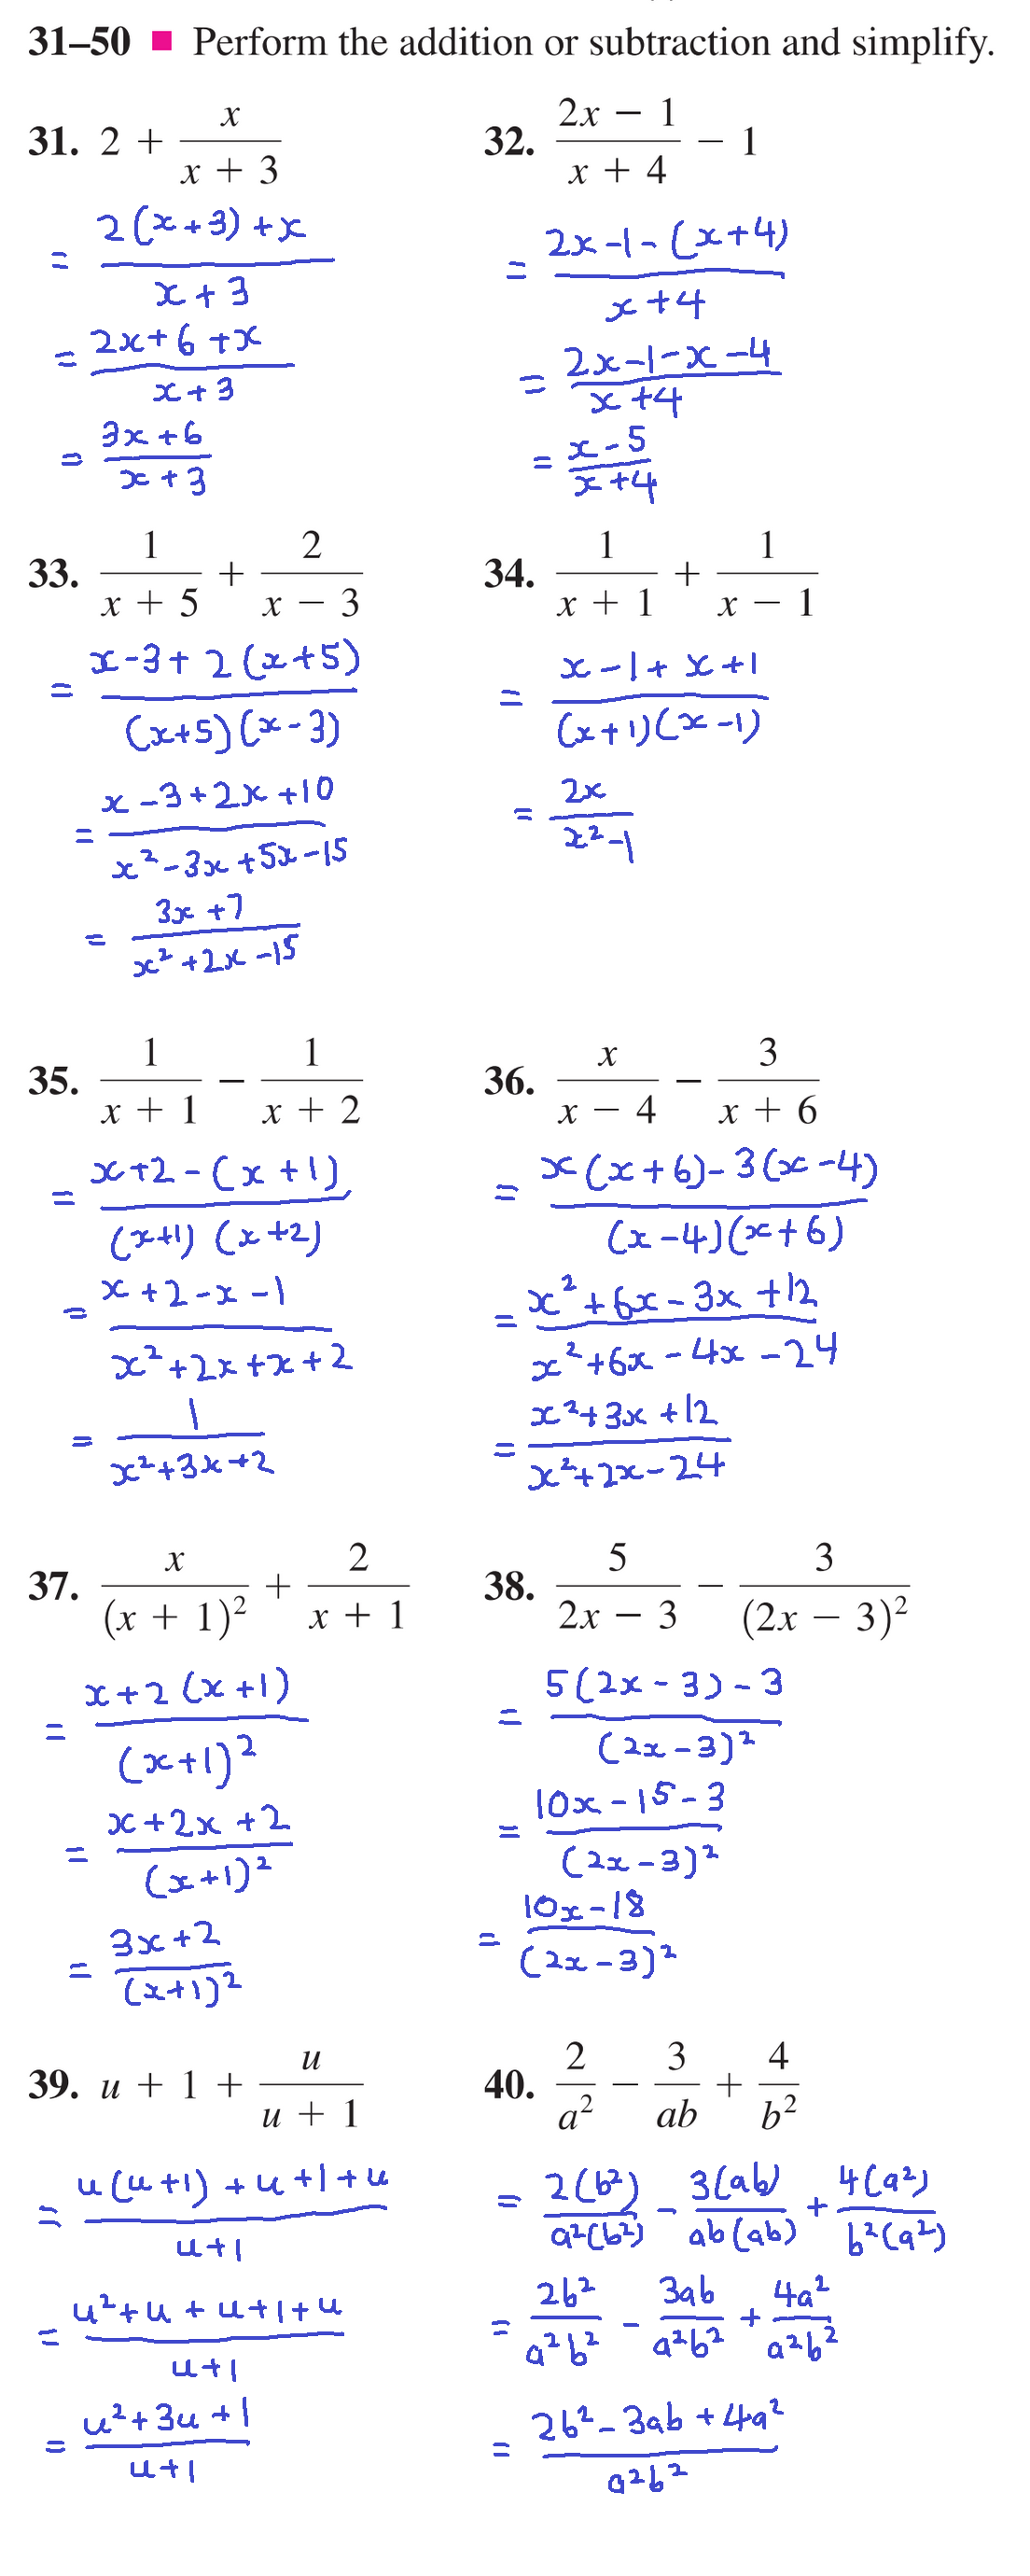 31–50 ■ Perform the addition or subtraction and simplify.
31. 2 + x/(x + 3)
= (2(x+3)+x)/(x+3)
= (2x+6+x)/(x+3)
= (3x+6)/(x+3)
32. (2x − 1)/(x + 4) − 1
= (2x-1-(x+4))/(x+4)
= (2x-1-x-4)/(x+4)
= (x-5)/(x+4)
33. 1/(x + 5) + 2/(x − 3)
= (x-3+2(x+5))/((x+5)(x-3))
= (x-3+2x+10)/(x²-3x+5x-15)
= (3x+7)/(x²+2x-15)
34. 1/(x + 1) + 1/(x − 1)
= (x-1+x+1)/((x+1)(x-1))
= 2x/(x²-1)
35. 1/(x + 1) − 1/(x + 2)
= (x+2-(x+1))/((x+1)(x+2))
= (x+2-x-1)/(x²+2x+x+2)
= 1/(x²+3x+2)
36. x/(x − 4) − 3/(x + 6)
= (x(x+6)-3(x-4))/((x-4)(x+6))
= (x²+6x-3x+12)/(x²+6x-4x-24)
= (x²+3x+12)/(x²+2x-24)
37. x/(x + 1)² + 2/(x + 1)
= (x+2(x+1))/(x+1)²
= (x+2x+2)/(x+1)²
= (3x+2)/(x+1)²
38. 5/(2x − 3) − 3/(2x − 3)²
= (5(2x-3)-3)/(2x-3)²
= (10x-15-3)/(2x-3)²
= (10x-18)/(2x-3)²
39. u + 1 + u/(u + 1)
= (u(u+1)+u+1+u)/(u+1)
= (u²+u+u+1+u)/(u+1)
= (u²+3u+1)/(u+1)
40. 2/a² − 3/ab + 4/b²
= 2(b²)/a²(b²) - 3(ab)/ab(ab) + 4(a²)/b²(a²)
= 2b²/a²b² - 3ab/a²b² + 4a²/a²b²
= (2b²-3ab+4a²)/a²b²